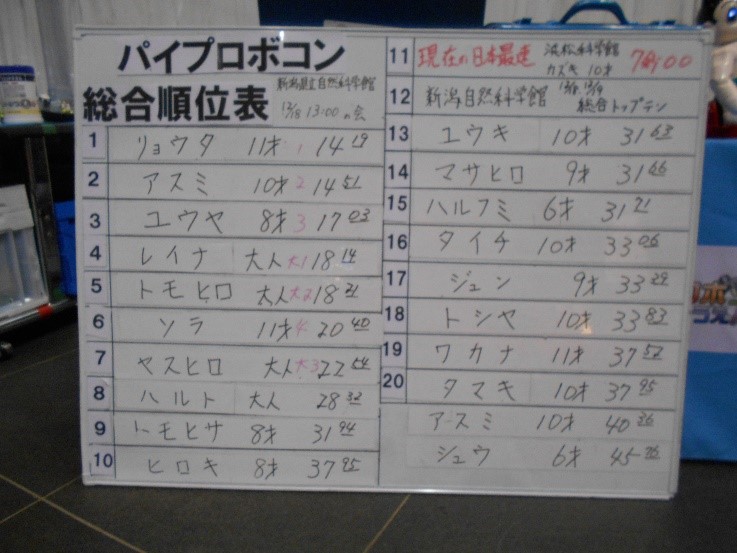 パイプロボコン
総合順位表
新潟県立自然科学館
12/18 13:00の会
1 リョウタ 11才 1 14 19
2 アスミ 10才 2 14 51
3 ユウヤ 8才 3 17 03
4 レイナ 大人 大1 18 14
5 トモヒロ 大人 大2 18 31
6 ソラ 11才 4 20 40
7 ヤスヒロ 大人 大3 22 54
8 ハルト 大人 28 32
9 トモヒサ 8才 31 94
10 ヒロキ 8才 37 95
11 現在の日本最速 浜松科学館
カズキ 10才
12 新潟自然科学館 12/18. 12/19
総合トップテン
13 ユウキ 10才 31 63
14 マサヒロ 9才 31 66
15 ハルフミ 6才 31 21
16 タイチ 10才 33 06
17 ジュン 9才 33 29
18 トシヤ 10才 33 83
19 ワカナ 11才 37 52
20 タマキ 10才 37 95
アスミ 10才 40 26
シュウ 6才 45 76